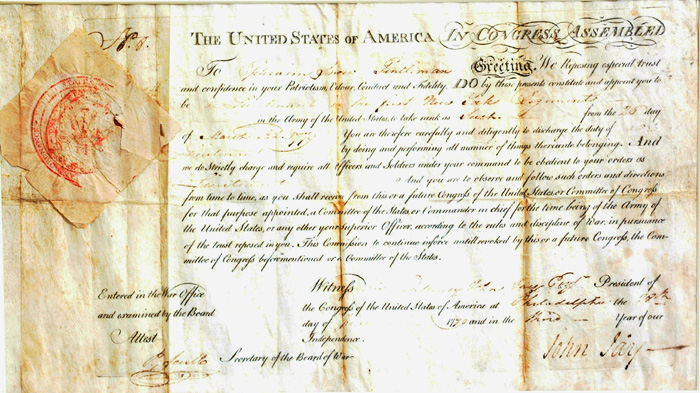 THE UNITED STATES OF AMERICA IN CONGRESS ASSEMBLED
To Gentleman Greeting, We Reposing especial trust
and confidence in your Patriotism, Valour, Conduct and Fidelity, DO by these presents constitute and appoint you to
be first New York Regiment
in the Army of the United States, to take rank as Such from the day
of March You are therefore carefully and diligently to discharge the duty of
by doing and performing all manner of things thereunto belonging. And
we do Strictly charge and require all Officers and Soldiers under your command to be obedient to your orders as
And you are to observe and follow such orders and directions
from time to time, as you Shall receive from this or a future Congress of the United States, or Committee of Congress
for that purpose appointed, a Committee of the States, or Commander in chief for the time being of the Army of
the United States, or any other your Superior Officer, according to the rules and discipline of War, in pursuance
of the trust reposed in you. This Commission to continue in force until revoked by this or a future Congress, the Com-
mittee of Congress beforementioned or a Committee of the States.
Entered in the War Office
and examined by the Board
Attest
Secretary of the Board of War
Witness John Jay Esqr. President of
the Congress of the United States of America at Philadelphia the
day of and in the third Year of our
Independence.
John Jay